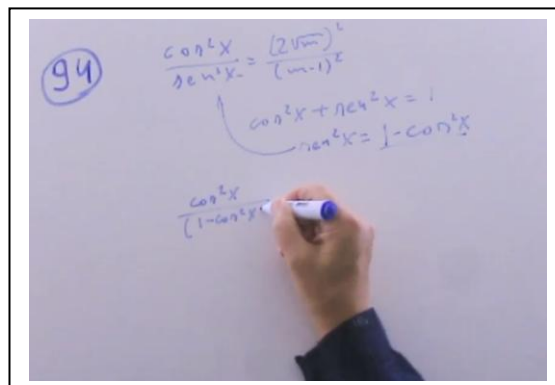 94
cos²x / sen²x = (2√m)² / (m-1)²
cos²x + sen²x = 1
sen²x = 1 - cos²x
cos²x / (1-cos²x